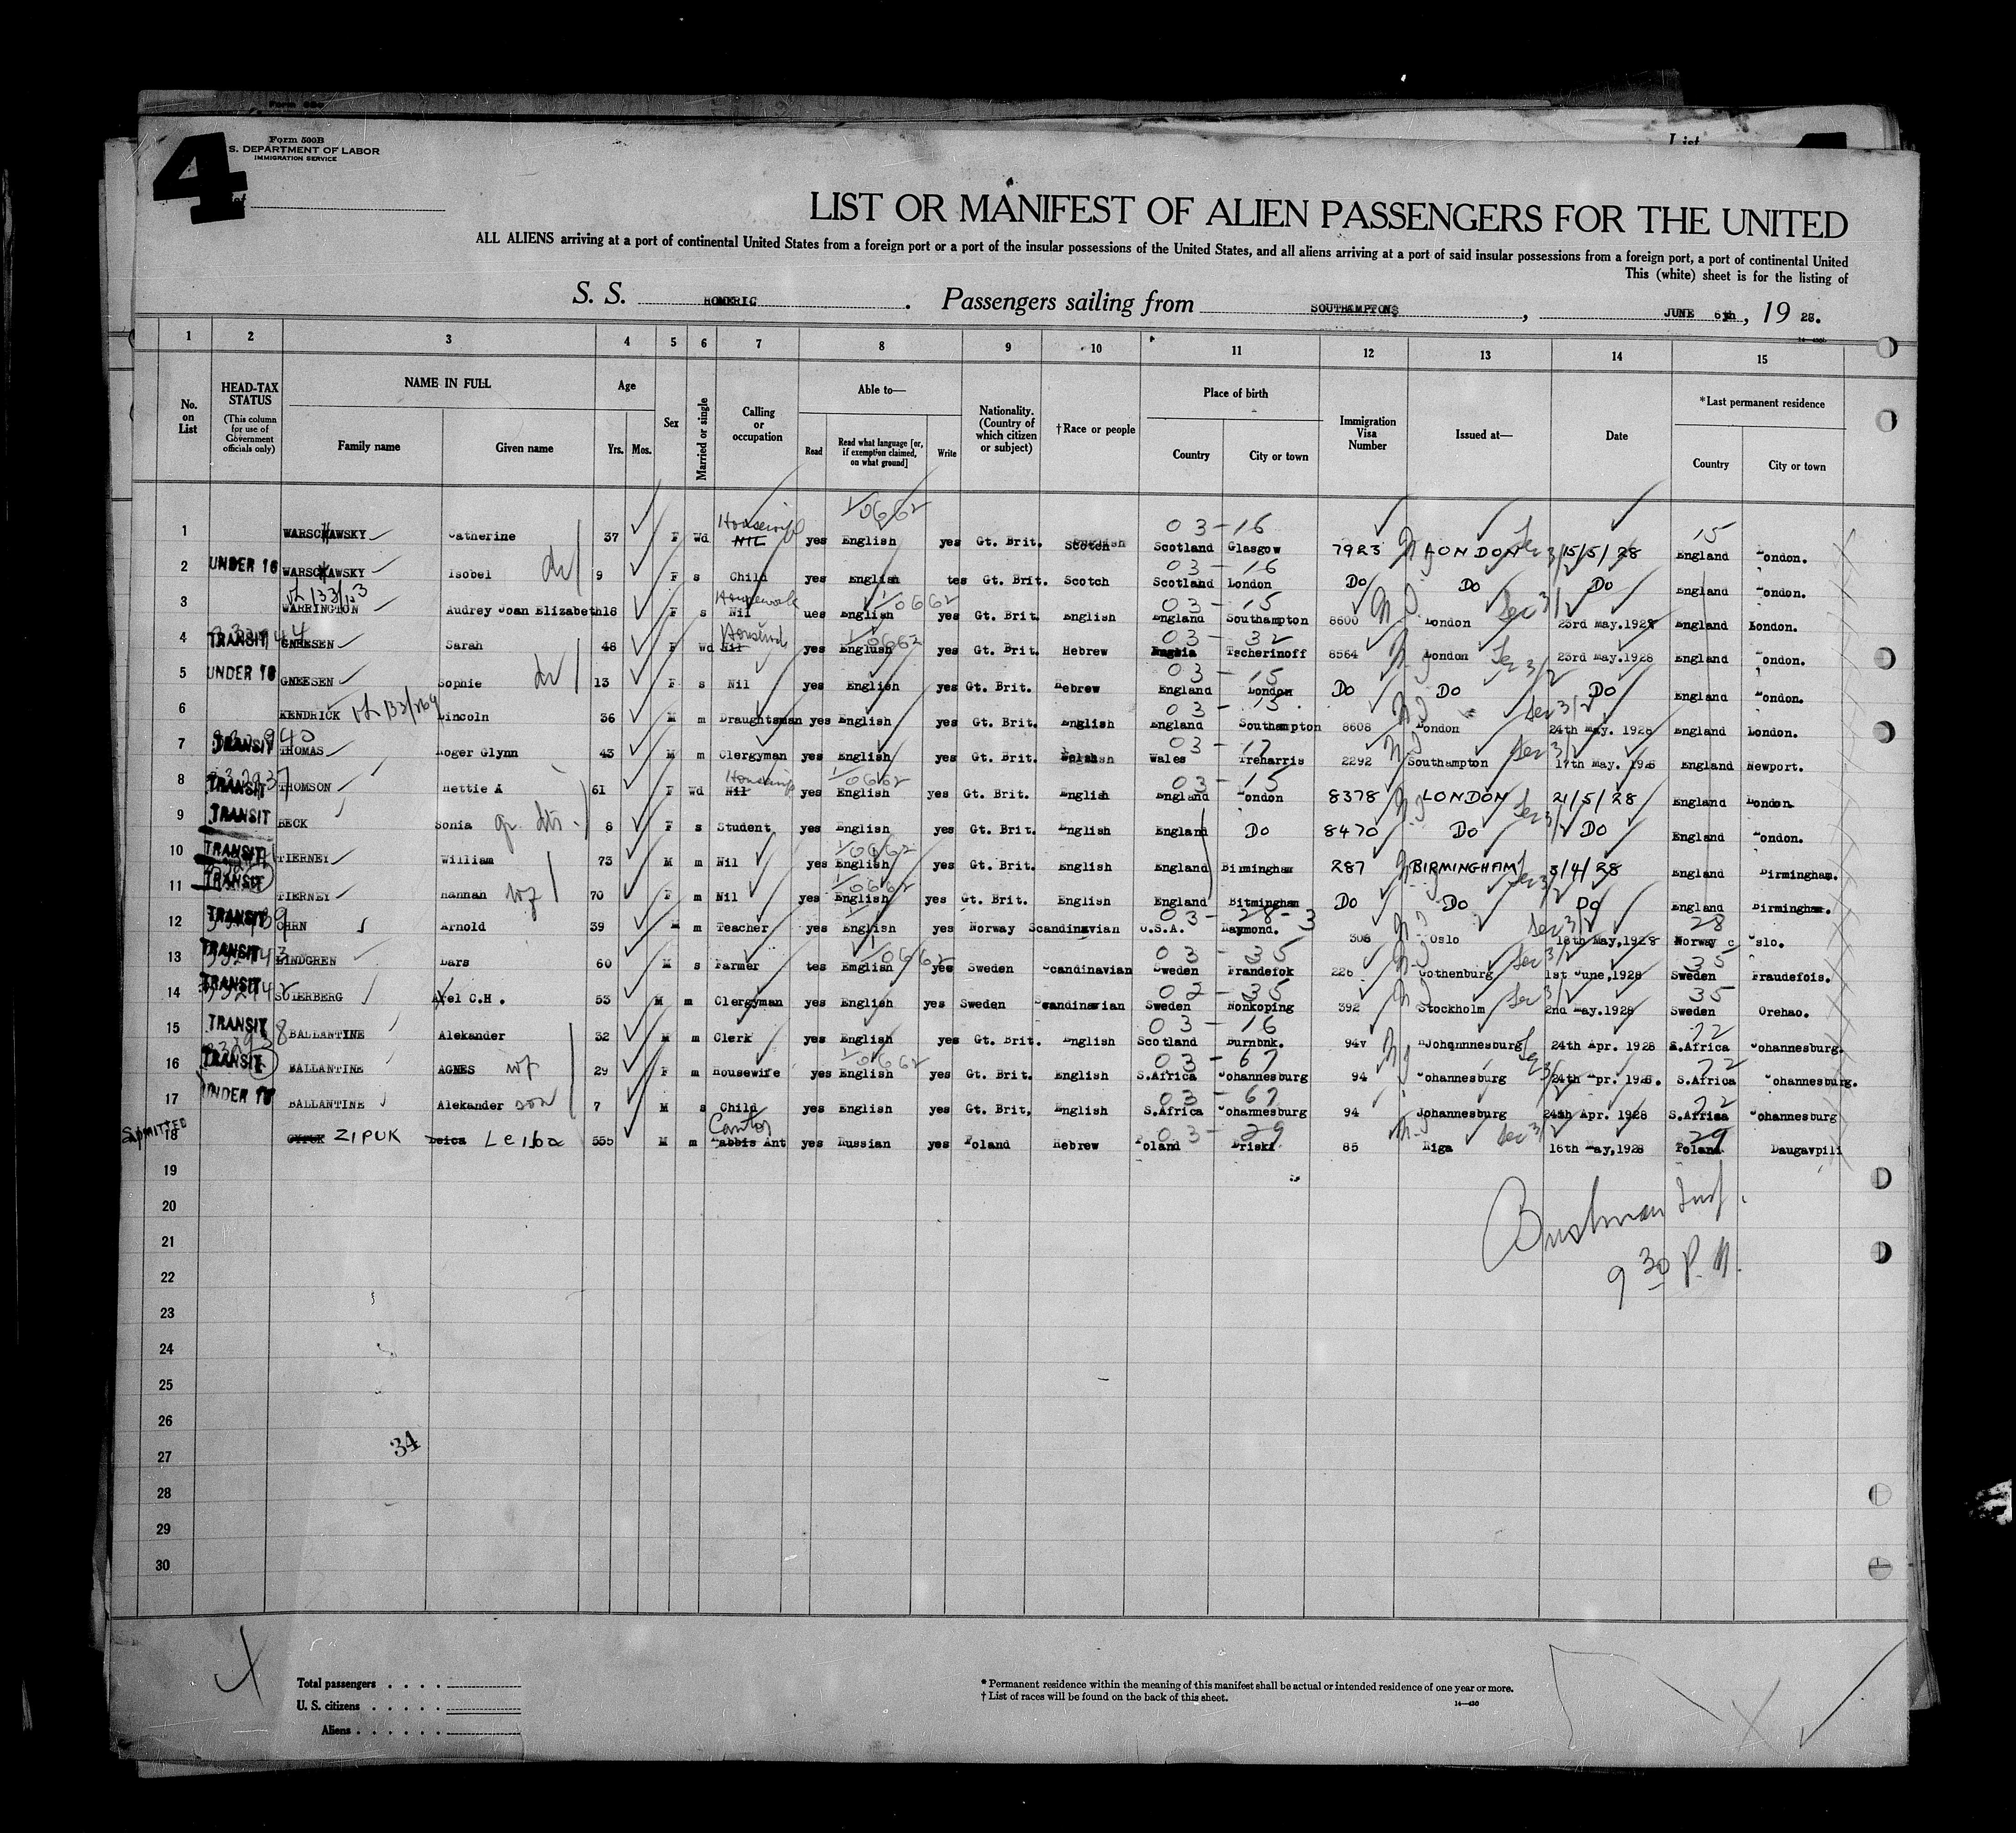 4
Form 500B
S. DEPARTMENT OF LABOR
IMMIGRATION SERVICE
List
LIST OR MANIFEST OF ALIEN PASSENGERS FOR THE UNITED
ALL ALIENS arriving at a port of continental United States from a foreign port or a port of the insular possessions of the United States, and all aliens arriving at a port of said insular possessions from a foreign port, a port of continental United
This (white) sheet is for the listing of
S. S. HOMERIC . Passengers sailing from SOUTHAMPTON , JUNE 6th , 19 28.
1 2 3 4 5 6 7 8 9 10 11 12 13 14 15
No. on List
HEAD-TAX STATUS (This column for use of Government officials only)
NAME IN FULL
Family name Given name
Age
Yrs. Mos.
Sex
Married or single
Calling or occupation
Able to—
Read
Read what language [or, if exemption claimed, on what ground]
Write
Nationality. (Country of which citizen or subject)
†Race or people
Place of birth
Country City or town
Immigration Visa Number
Issued at—
Date
*Last permanent residence
Country City or town
1 WARSCHAWSKY Catherine 37 F Wd NIL Housewife yes English 1/0662 yes Gt. Brit. Scotch 03-16 Scotland Glasgow 7923 LONDON 15/5/28 15 England London.
2 UNDER 16 WARSCHAWSKY Isobel 9 F s Child yes English tes Gt. Brit. Scotch 03-16 Scotland London Do Do Do England London.
3 WARRINGTON Audrey Joan Elizabeth 18 F s Nil Housework ues English 1/0662 yes Gt. Brit. English 03-15 England Southampton 8600 London 23rd May.1928 England London.
4 TRANSIT GNEESEN Sarah 48 F Wd Nil yes English 1/0662 yes Gt. Brit. Hebrew 03-32 Tscherinoff 8564 London 23rd May.1928 England London.
5 UNDER 16 GNEESEN Sophie 13 F s Nil yes English yes Gt. Brit. Hebrew 03-15 England London Do Do Do England London.
6 KENDRICK Lincoln 36 M m Draughtsman yes English yes Gt. Brit. English 03-15 England Southampton 8608 London 24th May. 1928 England London.
7 TRANSIT THOMAS Roger Glynn 43 M m Clergyman yes English yes Gt. Brit. 03-17 Wales Treharris 2292 Southampton 17th May. 1928 England Newport.
8 TRANSIT THOMSON Hettie A 61 F Wd Nil Housewife yes English 1/0662 yes Gt. Brit. English 03-15 England London 8378 LONDON 21/5/28 England London.
9 TRANSIT BECK Sonia 6 F s Student yes English yes Gt. Brit. English England Do 8470 Do Do England London.
10 TRANSIT TIERNEY William 73 M m Nil yes English 1/0662 yes Gt. Brit. English England Birmingham 287 BIRMINGHAM 3/4/28 England Birmingham.
11 TRANSIT TIERNEY Hannah wf 70 F m Nil yes English 1/0662 yes Gt. Brit. English England Bitmingham Do Do Do England Birmingham.
12 TRANSIT OHRN Arnold 39 M m Teacher yes English yes Norway Scandinavian 03-28-3 U.S.A. Raymond. 308 Oslo 18th May,1928 28 Norway Oslo.
13 TRANSIT LINDGREN Lars 60 M s Farmer tes Emglish 1/0662 yes Sweden Scandinavian 03-35 Sweden Frandefok 226 Gothenburg 1st June,1928 35 Sweden Fraudefois.
14 TRANSIT SODERBERG Axel C.H. 53 M m Clergyman yes English yes Sweden Scandinavian 02-35 Sweden Nonkoping 392 Stockholm 2nd May.1928 35 Sweden Orehao.
15 TRANSIT BALLANTINE Alekander 32 M m Clerk yes English yes Gt. Brit. English 03-16 Scotland Burnbnk. 94v Johqnnnesburg 24th Apr. 1928 72 S.Africa Johannesburg.
16 TRANSIT BALLANTINE AGNES wf 29 F m Housewife yes English 1/0662 yes Gt. Brit. English 03-67 S.Africa Johannesburg 94 Johannesburg 24th Apr. 1928. 72 S.Africa Johannesburg.
17 UNDER 16 BALLANTINE Alekander son 7 M s Child yes English yes Gt. Brit. English 03-67 S.Africa Johannesburg 94 Johannesburg 24th Apr. 1928 72 S.Africa Johannesburg
18 ADMITTED ZIPUK Leiba 55 M m Cantor Rabbis Ant yes Russian yes Poland Hebrew 03-29 Poland Driska 85 Riga 16th May,1928 29 Poland Daugavpili
19
20
21
22
23
24
25
26
27
28
29
30
Bushman Insp.
9 30 P. M.
34
Total passengers . . . .
U. S. citizens . . . . .
Aliens . . . . . .
* Permanent residence within the meaning of this manifest shall be actual or intended residence of one year or more.
† List of races will be found on the back of this sheet.
14—430